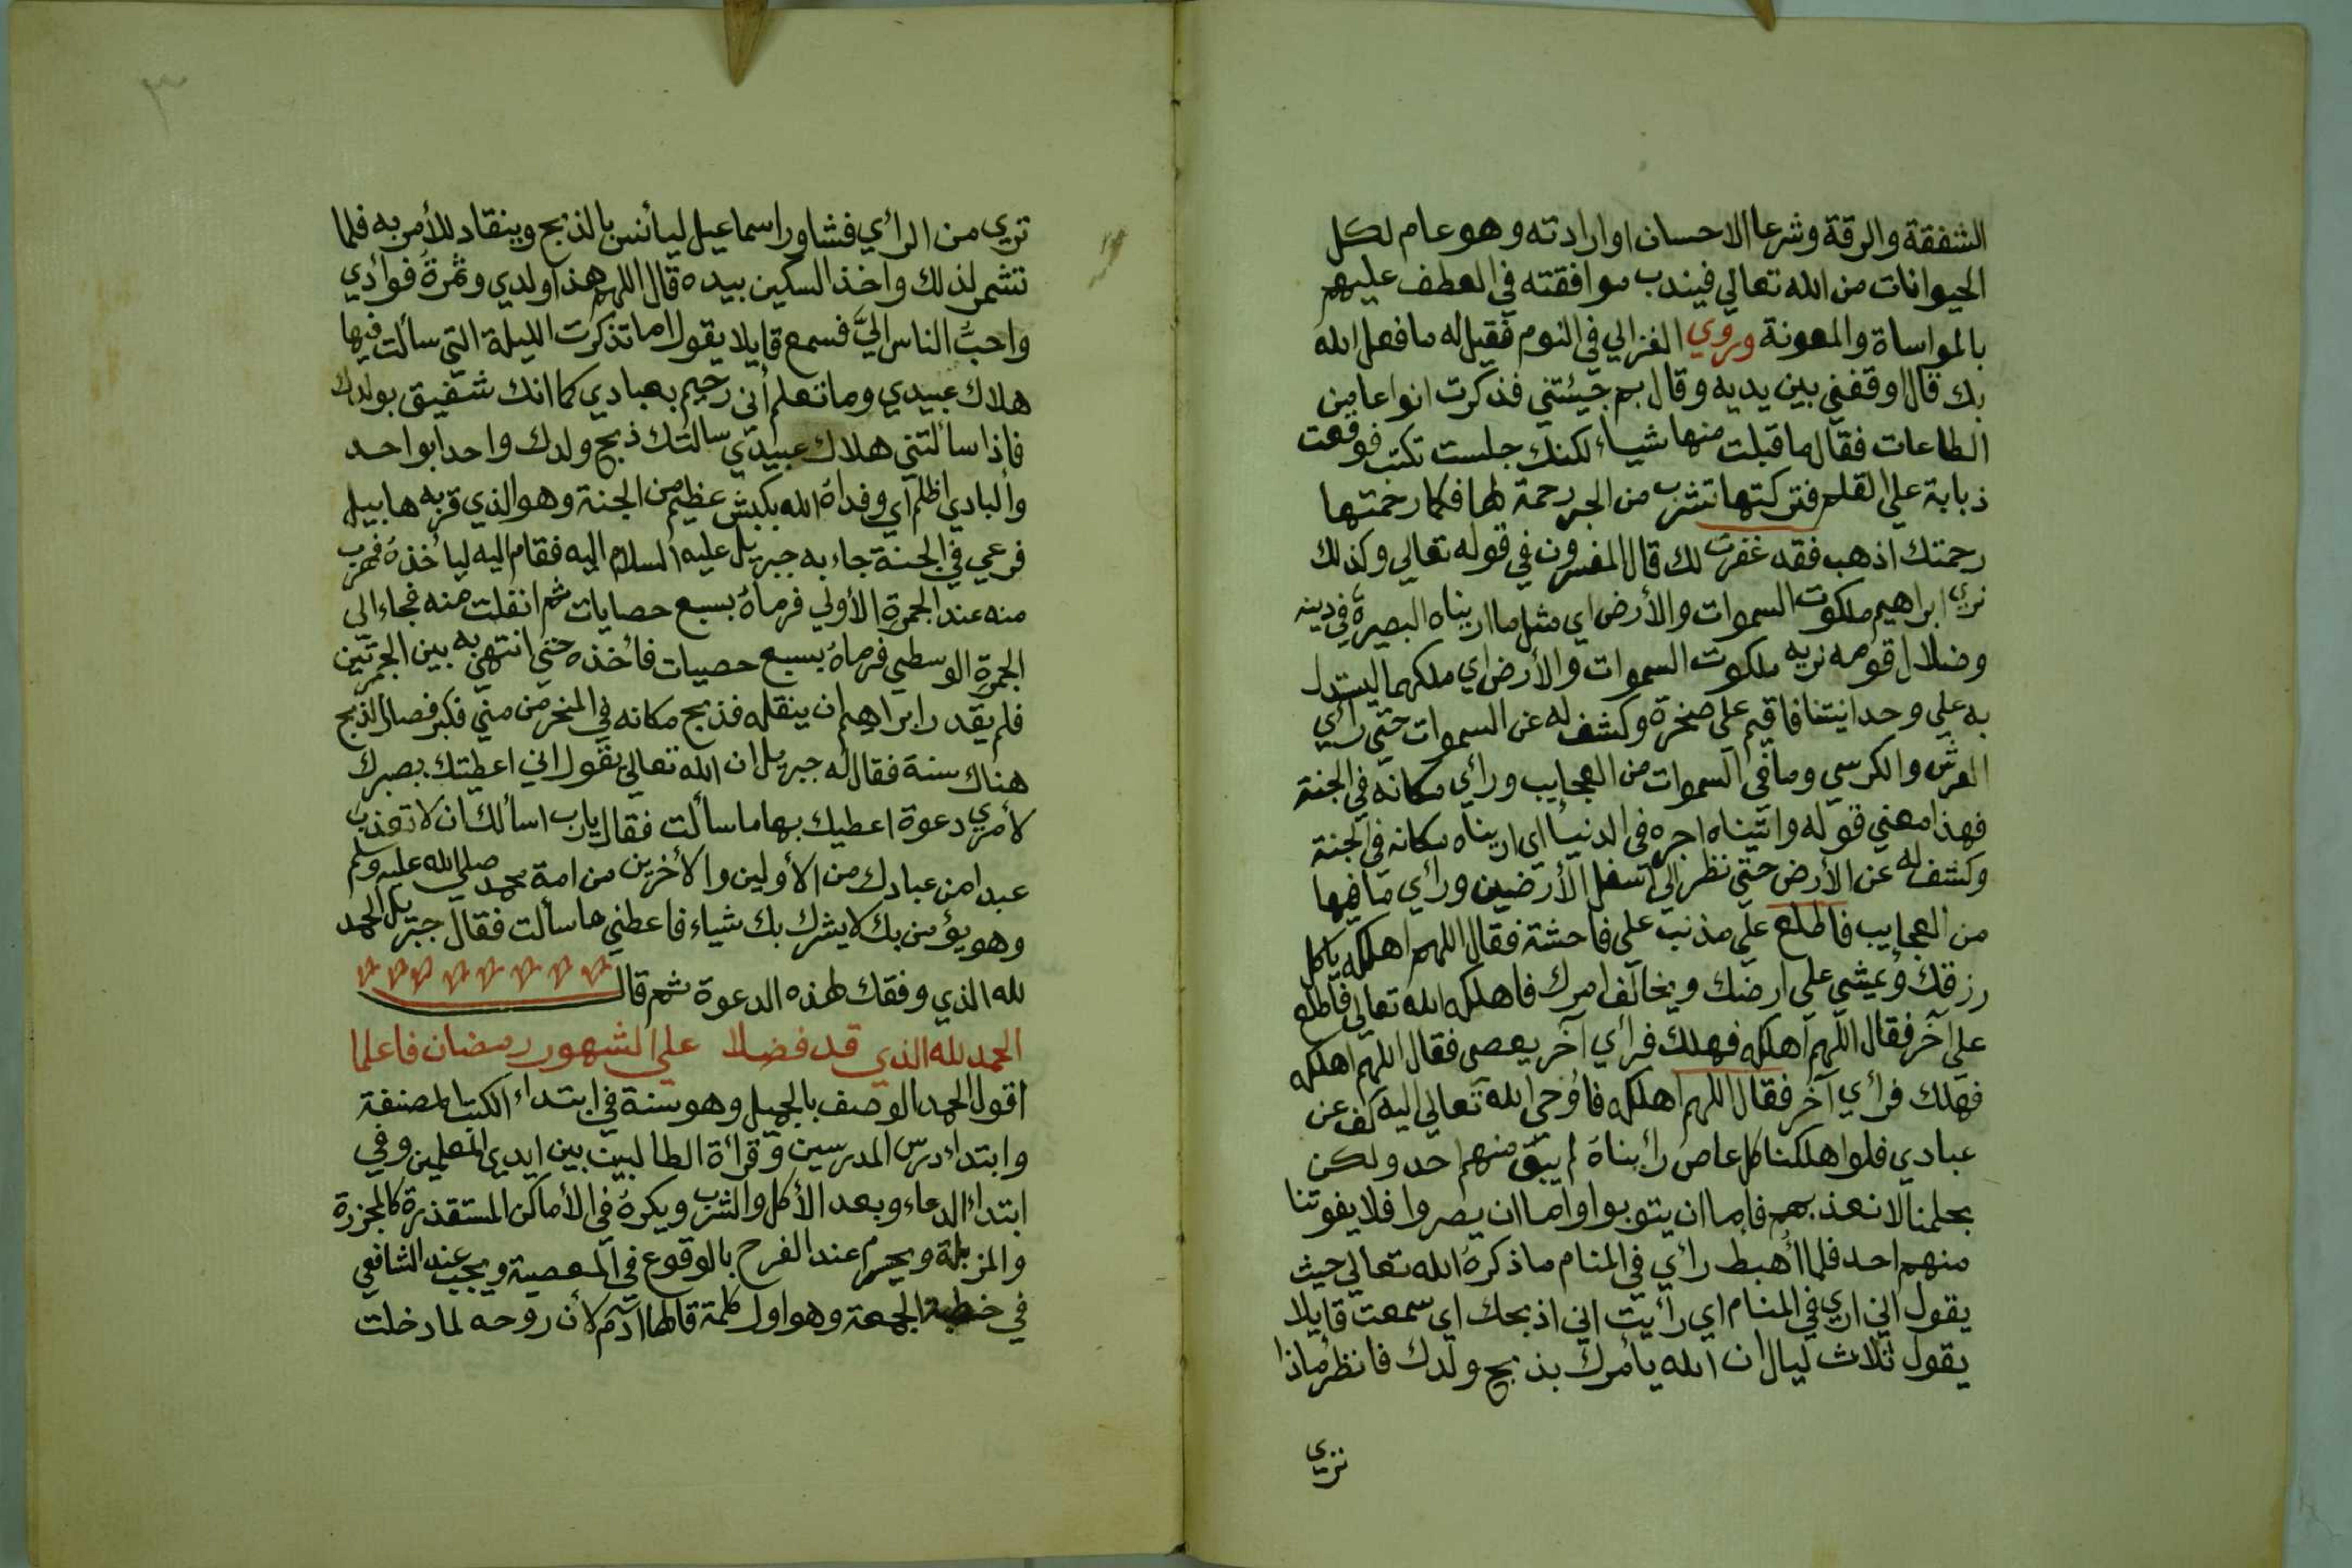 الشفقة والرقة وشرعا الاحسان او ارادته وهو عام لكل
الحيوانات من الله تعالي فيندب موافقته في العطف عليهم
بالمواساة والمعونة وروي الغزالي في النوم فقيل له ما فعل الله
بك قال اوقفني بين يديه وقال بم جيئتني فذكرت انواعا من
الطاعات فقال ما قبلت منها شياء لكنك جلست تكتب فوقعت
ذبابة علي القلم فتركتها تشرب من الحبر رحمة لها فكما رحمتها
رحمتك اذهب فقد غفرت لك قال المفسرون في قوله تعالي وكذلك
نري ابراهيم ملكوت السموات والأرض اي مثل ما اريناه البصيرة في دينه
وضلال قومه نريه ملكوت السموات والأرض اي ملكهما ليستدل
به علي وحدانيتنا فاقيم علي صخرة وكشف له عن السموات حتي رأي
العرش والكرسي وما في السموات من العجايب ورأي مكانه في الجنة
فهذا معني قوله واتيناه اجره في الدنيا اي اريناه مكانه في الجنة
وكشف له عن الأرض حتي نظر الي اسفل الأرضين ورأي ما فيها
من العجايب فاطلع علي مذنب علي فاحشة فقال اللهم اهلكه ياكل
رزقك ويمشي علي ارضك ويخالف امرك فاهلكه الله تعالي فاطلع
علي آخر فقال اللهم اهلكه فهلك فرأي آخر يعصي فقال اللهم اهلكه
فهلك فرأي آخر فقال اللهم اهلكه فاوحي الله تعالي اليه كف عن
عبادي فلو اهلكنا كل عاص رأيناه لم يبق منهم احد ولكن
بحلمنا لا نعذبهم فاما ان يتوبوا واما ان يصروا فلا يفوتنا
منهم احد فلما أهبط رأي في المنام ما ذكره الله تعالي حيث
يقول اني اري في المنام اي رأيت اني اذبحك اي سمعت قايلا
يقول ثلاث ليال ان الله يأمرك بذبح ولدك فانظر ماذا
تري
٣
تري من الرأي فشاور اسماعيل ليأنس بالذبح وينقاد للأمر به فلما
تشمر لذلك واخذ السكين بيده قال اللهم هذا ولدي وثمرة فوادي
واحب الناس اليّ فسمع قايلا يقول اما تذكرت الليلة التي سألت فيها
هلاك عبيدي وما تعلم أني رحيم بعبادي كما انك شفيق بولدك
فاذا سألتني هلاك عبيدي سالتك ذبح ولدك واحدا بواحد
والبادي اظلم اي وفداه الله بكبش عظيم من الجنة وهو الذي قربه هابيل
فرعي في الجنة جاء به جبريل عليه السلام اليه فقام اليه ليأخذه فهرب
منه عند الجمرة الأولي فرماه بسبع حصايات ثم انفلت منه فجاء الي
الجمرة الوسطي فرماه بسبع حصيات فأخذه حتي انتهي به بين الجمرتين
فلم يقدر ابراهيم ان ينقله فذبح مكانه في المنحر من مني فكبر فصار الذبح
هناك سنة فقال له جبريل ان الله تعالي يقول اني اعطيتك بصبرك
لأمري دعوة اعطيك بها ما سألت فقال يارب اسألك ان لا تعذب
عبدا من عبادك من الأولين والأخرين من امة محمد صلي الله عليه وسلم
وهو يؤمن بك لا يشرك بك شياء فاعطني ما سألت فقال جبريل الحمد
لله الذي وفقك لهذه الدعوة ثم قال
الحمد لله الذي قد فضلا علي الشهور رمضان فاعلما
اقول الحمد الوصف بالجميل وهو سنة في ابتداء الكتب المصنفة
وابتداء درس المدرسين وقرأة الطالبين بين ايدي المعلمين وفي
ابتداء الدعاء وبعد الأكل والشرب ويكره في الأماكن المستقذرة كالمجزرة
والمزبلة ويحرم عند الفرح بالوقوع في المعصية ويجب عند الشافعي
في خطبة الجمعة وهو اول كلمة قالها آدم لأن روحه لما دخلت